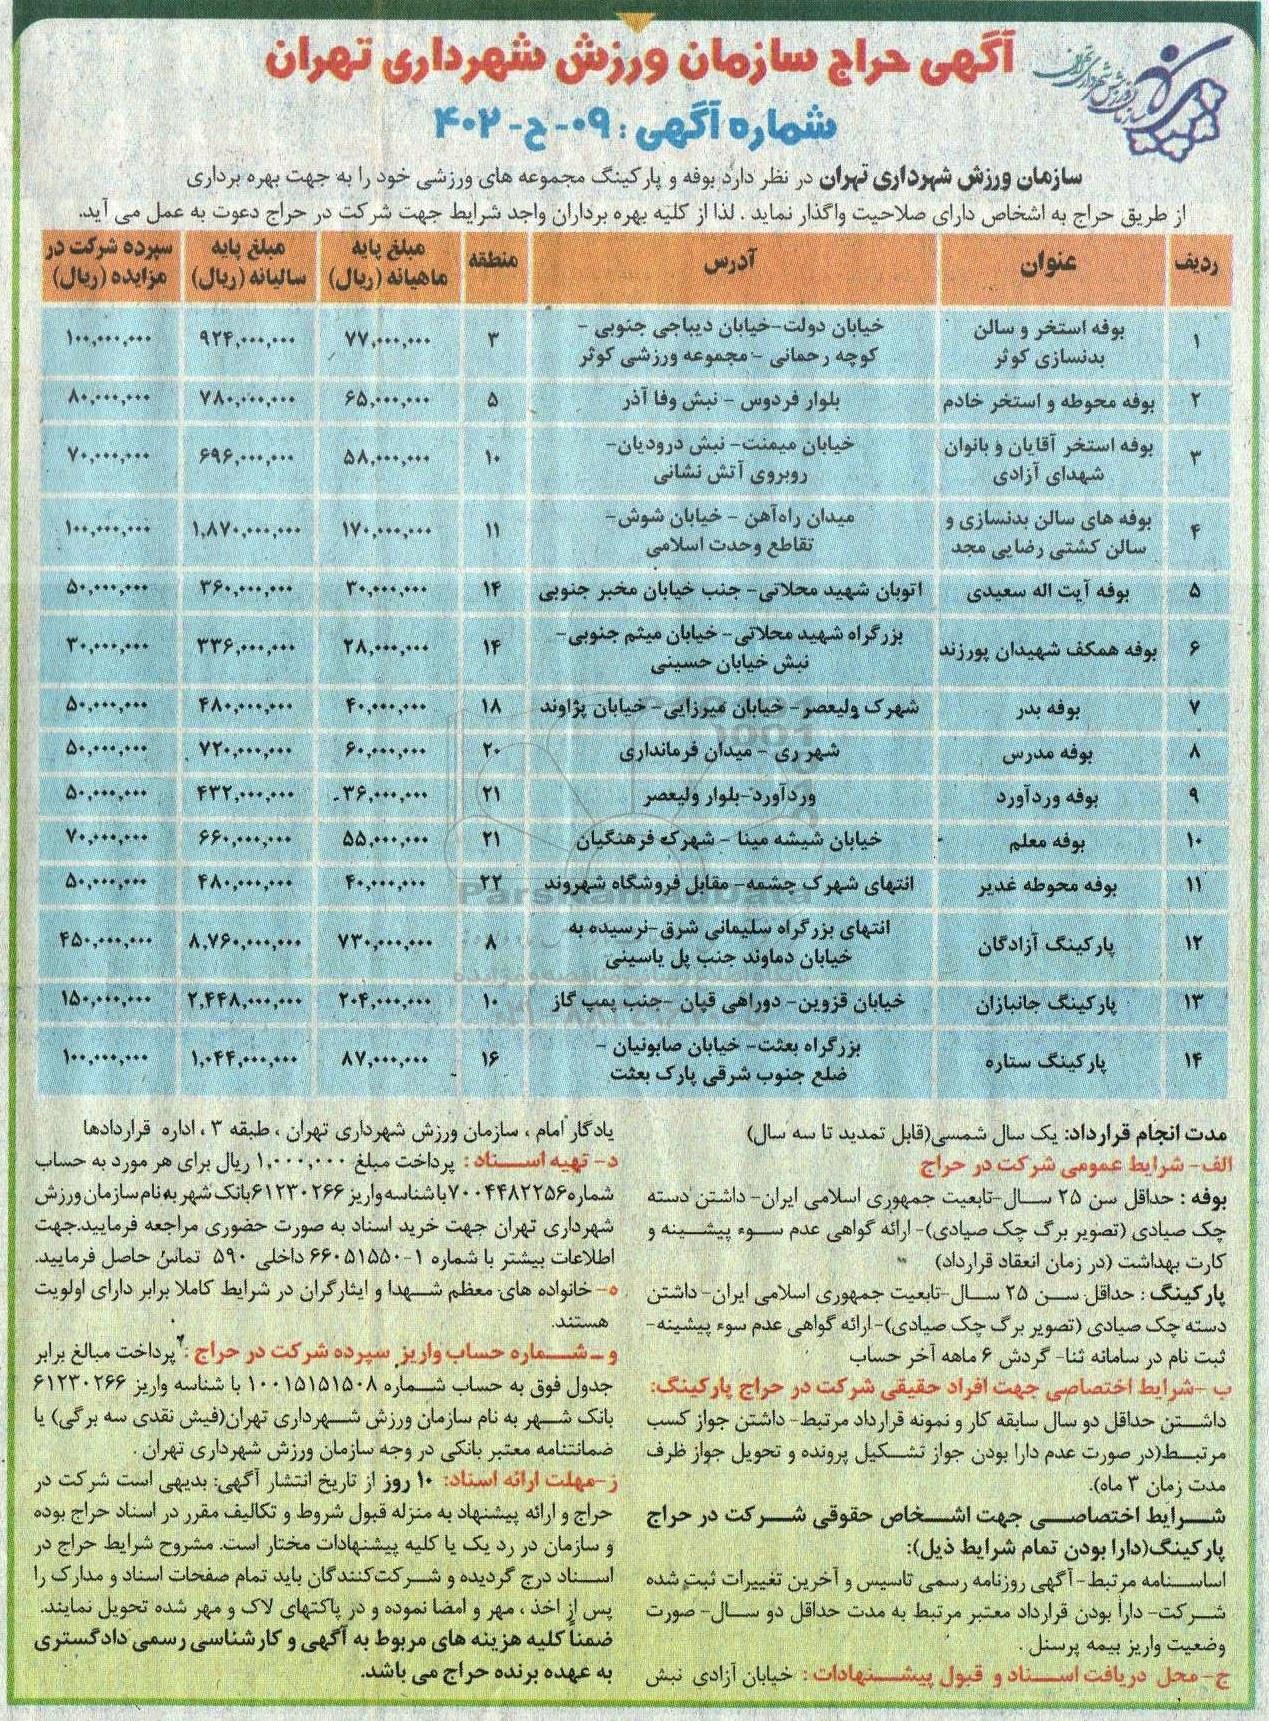 آگهی حراج سازمان ورزش شهرداری تهران
شماره آگهی : ۰۹- ح- ۴۰۲
سازمان ورزش شهرداری تهران در نظر دارد بوفه و پارکینگ مجموعه های ورزشی خود را به جهت بهره برداری
از طریق حراج به اشخاص دارای صلاحیت واگذار نماید . لذا از کلیه بهره برداران واجد شرایط جهت شرکت در حراج دعوت به عمل می آید.
ردیف عنوان آدرس منطقه مبلغ پایه ماهیانه (ریال) مبلغ پایه سالیانه (ریال) سپرده شرکت در مزایده (ریال)
۱ بوفه استخر و سالن بدنسازی کوثر خیابان دولت-خیابان دیباجی جنوبی - کوچه رحمانی - مجموعه ورزشی کوثر ۳ ۷۷,۰۰۰,۰۰۰ ۹۲۴,۰۰۰,۰۰۰ ۱۰۰,۰۰۰,۰۰۰
۲ بوفه محوطه و استخر خادم بلوار فردوس - نبش وفا آذر ۵ ۶۵,۰۰۰,۰۰۰ ۷۸۰,۰۰۰,۰۰۰ ۸۰,۰۰۰,۰۰۰
۳ بوفه استخر آقایان و بانوان شهدای آزادی خیابان میمنت- نبش درودیان- روبروی آتش نشانی ۱۰ ۵۸,۰۰۰,۰۰۰ ۶۹۶,۰۰۰,۰۰۰ ۷۰,۰۰۰,۰۰۰
۴ بوفه های سالن بدنسازی و سالن کشتی رضایی مجد میدان راه‌آهن - خیابان شوش- تقاطع وحدت اسلامی ۱۱ ۱۷۰,۰۰۰,۰۰۰ ۱,۸۷۰,۰۰۰,۰۰۰ ۱۰۰,۰۰۰,۰۰۰
۵ بوفه آیت اله سعیدی اتوبان شهید محلاتی- جنب خیابان مخبر جنوبی ۱۴ ۳۰,۰۰۰,۰۰۰ ۳۶۰,۰۰۰,۰۰۰ ۵۰,۰۰۰,۰۰۰
۶ بوفه همکف شهیدان پورزند بزرگراه شهید محلاتی- خیابان میثم جنوبی- نبش خیابان حسینی ۱۴ ۲۸,۰۰۰,۰۰۰ ۳۳۶,۰۰۰,۰۰۰ ۳۰,۰۰۰,۰۰۰
۷ بوفه بدر شهرک ولیعصر- خیابان میرزایی- خیابان پژاوند ۱۸ ۴۰,۰۰۰,۰۰۰ ۴۸۰,۰۰۰,۰۰۰ ۵۰,۰۰۰,۰۰۰
۸ بوفه مدرس شهر ری - میدان فرمانداری ۲۰ ۶۰,۰۰۰,۰۰۰ ۷۲۰,۰۰۰,۰۰۰ ۵۰,۰۰۰,۰۰۰
۹ بوفه وردآورد وردآورد-بلوار ولیعصر ۲۱ ۳۶,۰۰۰,۰۰۰ ۴۳۲,۰۰۰,۰۰۰ ۵۰,۰۰۰,۰۰۰
۱۰ بوفه معلم خیابان شیشه مینا - شهرک فرهنگیان ۲۱ ۵۵,۰۰۰,۰۰۰ ۶۶۰,۰۰۰,۰۰۰ ۷۰,۰۰۰,۰۰۰
۱۱ بوفه محوطه غدیر انتهای شهرک چشمه- مقابل فروشگاه شهروند ۲۲ ۴۰,۰۰۰,۰۰۰ ۴۸۰,۰۰۰,۰۰۰ ۵۰,۰۰۰,۰۰۰
۱۲ پارکینگ آزادگان انتهای بزرگراه سلیمانی شرق-نرسیده به خیابان دماوند جنب پل یاسینی ۸ ۷۳۰,۰۰۰,۰۰۰ ۸,۷۶۰,۰۰۰,۰۰۰ ۴۵۰,۰۰۰,۰۰۰
۱۳ پارکینگ جانبازان خیابان قزوین- دوراهی قپان -جنب پمپ گاز ۱۰ ۲۰۴,۰۰۰,۰۰۰ ۲,۴۴۸,۰۰۰,۰۰۰ ۱۵۰,۰۰۰,۰۰۰
۱۴ پارکینگ ستاره بزرگراه بعثت- خیابان صابونیان - ضلع جنوب شرقی پارک بعثت ۱۶ ۸۷,۰۰۰,۰۰۰ ۱,۰۴۴,۰۰۰,۰۰۰ ۱۰۰,۰۰۰,۰۰۰
مدت انجام قرارداد: یک سال شمسی(قابل تمدید تا سه سال)
الف- شرایط عمومی شرکت در حراج
بوفه : حداقل سن ۲۵ سال-تابعیت جمهوری اسلامی ایران- داشتن دسته
چک صیادی (تصویر برگ چک صیادی)- ارائه گواهی عدم سوء پیشینه و
کارت بهداشت (در زمان انعقاد قرارداد)
پارکینگ : حداقل سن ۲۵ سال-تابعیت جمهوری اسلامی ایران- داشتن
دسته چک صیادی (تصویر برگ چک صیادی)-ارائه گواهی عدم سوء پیشینه-
ثبت نام در سامانه ثنا- گردش ۶ ماهه آخر حساب
ب -شرایط اختصاصی جهت افراد حقیقی شرکت در حراج پارکینگ:
داشتن حداقل دو سال سابقه کار و نمونه قرارداد مرتبط- داشتن جواز کسب
مرتبط(در صورت عدم دارا بودن جواز تشکیل پرونده و تحویل جواز ظرف
مدت زمان ۳ ماه).
شرایط اختصاصی جهت اشخاص حقوقی شرکت در حراج
پارکینگ(دارا بودن تمام شرایط ذیل):
اساسنامه مرتبط- آگهی روزنامه رسمی تاسیس و آخرین تغییرات ثبت شده
شرکت- دارا بودن قرارداد معتبر مرتبط به مدت حداقل دو سال- صورت
وضعیت واریز بیمه پرسنل .
ج- محل دریافت اسناد و قبول پیشنهادات : خیابان آزادی نبش
یادگار امام ، سازمان ورزش شهرداری تهران ، طبقه ۳ ، اداره قراردادها
د- تهیه اسناد : پرداخت مبلغ ۱,۰۰۰,۰۰۰ ریال برای هر مورد به حساب
شماره ۷۰۰۴۴۸۲۲۵۶ با شناسه واریز ۶۱۲۳۰۲۶۶ بانک شهر به نام سازمان ورزش
شهرداری تهران جهت خرید اسناد به صورت حضوری مراجعه فرمایید.جهت
اطلاعات بیشتر با شماره ۱-۶۶۰۵۱۵۵۰ داخلی ۵۹۰ تماس حاصل فرمایید.
ه- خانواده های معظم شهدا و ایثارگران در شرایط کاملا برابر دارای اولویت
هستند.
و - شماره حساب واریز سپرده شرکت در حراج : پرداخت مبالغ برابر
جدول فوق به حساب شماره ۱۰۰۱۵۱۵۱۵۰۸ با شناسه واریز ۶۱۲۳۰۲۶۶
بانک شهر به نام سازمان ورزش شهرداری تهران(فیش نقدی سه برگی) یا
ضمانتنامه معتبر بانکی در وجه سازمان ورزش شهرداری تهران .
ز-مهلت ارائه اسناد: ۱۰ روز از تاریخ انتشار آگهی: بدیهی است شرکت در
حراج و ارائه پیشنهاد به منزله قبول شروط و تکالیف مقرر در اسناد حراج بوده
و سازمان در رد یک یا کلیه پیشنهادات مختار است. مشروح شرایط حراج در
اسناد درج گردیده و شرکت‌کنندگان باید تمام صفحات اسناد و مدارک را
پس از اخذ ، مهر و امضا نموده و در پاکتهای لاک و مهر شده تحویل نمایند.
ضمناً کلیه هزینه های مربوط به آگهی و کارشناسی رسمی دادگستری
به عهده برنده حراج می باشد.